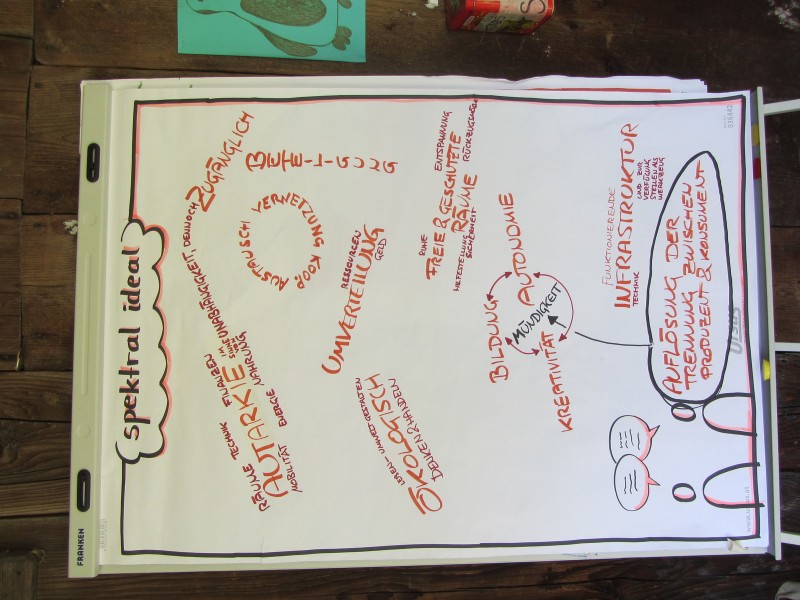 FRANKEN
spektral ideal
RÄUME TECHNIK FILIALISREN
AUTARKIE
IM SINNE VON
UNABHÄNGIGKEIT, DENNOCH
ZUGÄNGLICH
MOBILITÄT ENERGIE NAHRUNG
AUSTAUSCH
VERNETZUNG
KOOP
BETEILIGUNG
RESSOURCEN
UMVERTEILUNG
GELD
LEBEN + UMWELT GESTALTEN
ÖKOLOGISCH
DENKEN & HANDELN
RUHE
ENTSPANNUNG
FREIE & GESCHÜTZTE
RÄUME
HILFESTELLUNG
SICHERHEIT
RÜCKZUGSORT
BILDUNG
AUTONOMIE
MÜNDIGKEIT
KREATIVITÄT
FUNKTIONIERENDE
INFRASTRUKTUR
TECHNIK
UND ZUR
VERFÜGUNG
STELLEN ALS
WERKZEUG
AUFLÖSUNG DER
TRENNUNG ZWISCHEN
PRODUZENT & KONSUMENT
Ursus